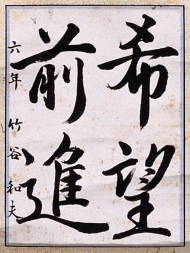 希望
前進
六年 竹谷和夫